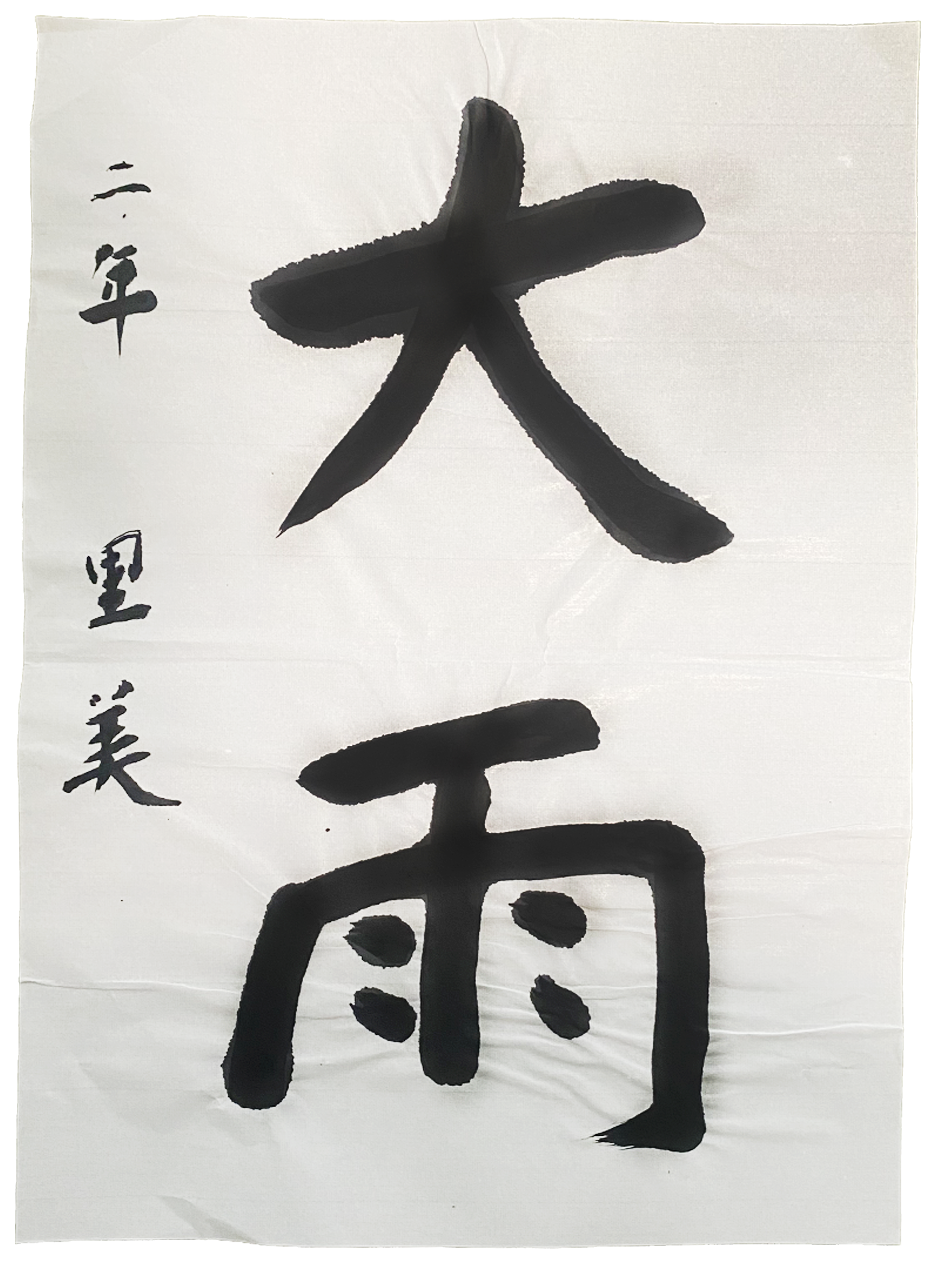 大雨
二年 里美